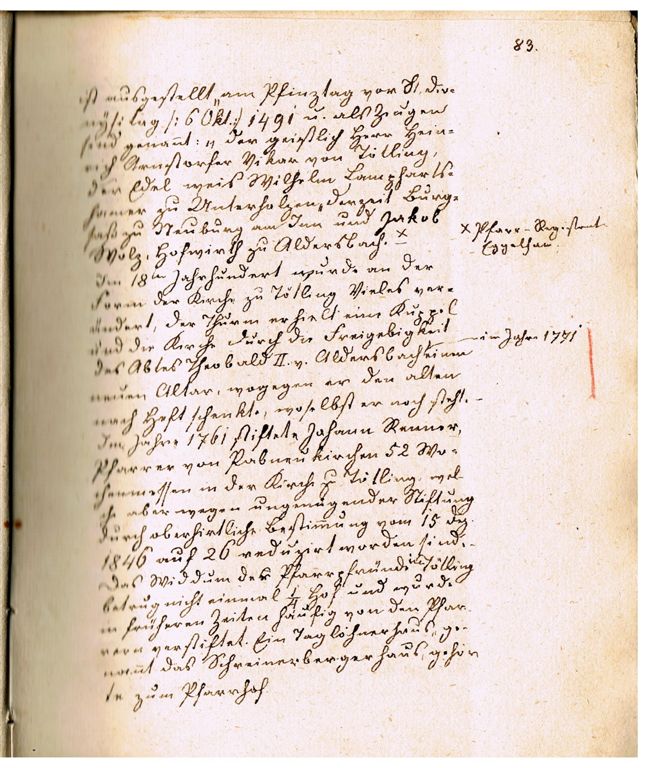 83.
ist ausgestellt „am Pfinztag vor St. Dio-
nysi: tag /: 6 Okt:/ 1491 u. als Zeugen
sind genannt: „ der geistlich Herr Hein-
rich Armstorfer Vikar von Tötling,
der Edel weis Wilhelm Lampharts-
hamer zu Unterholzen, derzeit Burge
sass zu Neuburg am Inn und Jakob
Wolz, Hofwirth zu Aldersbach. ×
× Pfarr-Registrat.
Egglham.
Im 18ten Jahrhundert wurde an der
Form der Kirche zu Tötling Vieles ver-
ändert, der Thurm erhielt eine Kuppel
und die Kirche durch die Freigebigkeit
im Jahre 1771
des Abtes Theobald II. v. Aldersbach einen
neuen Altar, wogegen er den alten
nach Heft schenkte, woselbst er noch steht.
Im Jahre 1761 stiftete Johann Renner,
Pfarrer von Rabneukirchen 52 Wo-
chenmessen in der Kirche zu Tötling, wel-
che aber wegen ungenügender Stiftung
durch oberhirtliche Bestimmung vom 15 Dez.
1846 auf 26 reduzirt worden sind.
Das Widdum der Pfarrpfründe in Tötling
betrug nicht einmal ½ Hof und wurde
in früheren Zeiten häufig von den Pfar-
rern verstiftet. Ein Taglöhnerhaus, ge-
nannt das Schreinerbergerhaus, gehör
te zum Pfarrhof